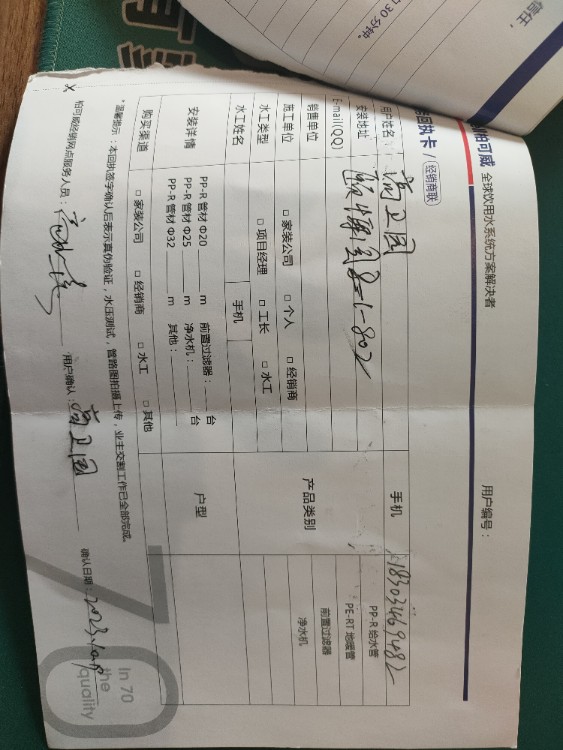 信任,
30分钟。
柏可威 全球饮用水系统方案解决者
用户编号：
回执卡 / 经销商联
用户姓名 手机 18303469482
安装地址 8-1-802 PP-R 给水管
E-mail(QQ) PE-RT 地暖管
销售单位 产品类别 前置过滤器
施工单位 □ 家装公司 □ 个人 □ 经销商 净水机
水工类型 □ 项目经理 □ 工长 □ 水工
水工姓名 手机
安装详情 PP-R 管材 Φ20 m 前置过滤器： 台 户型
PP-R 管材 Φ25 m 净水机： 台
PP-R 管材 Φ32 m 其他：
购买渠道 □ 家装公司 □ 经销商 □ 水工 □ 其他
*温馨提示：本回执签字确认后表示真伪验证，水压测试，管路图拍摄上传，业主交割工作已全部完成。
柏可威经销网点服务人员： 用户确认： 确认日期：2023.10.9
In 70
the
quality